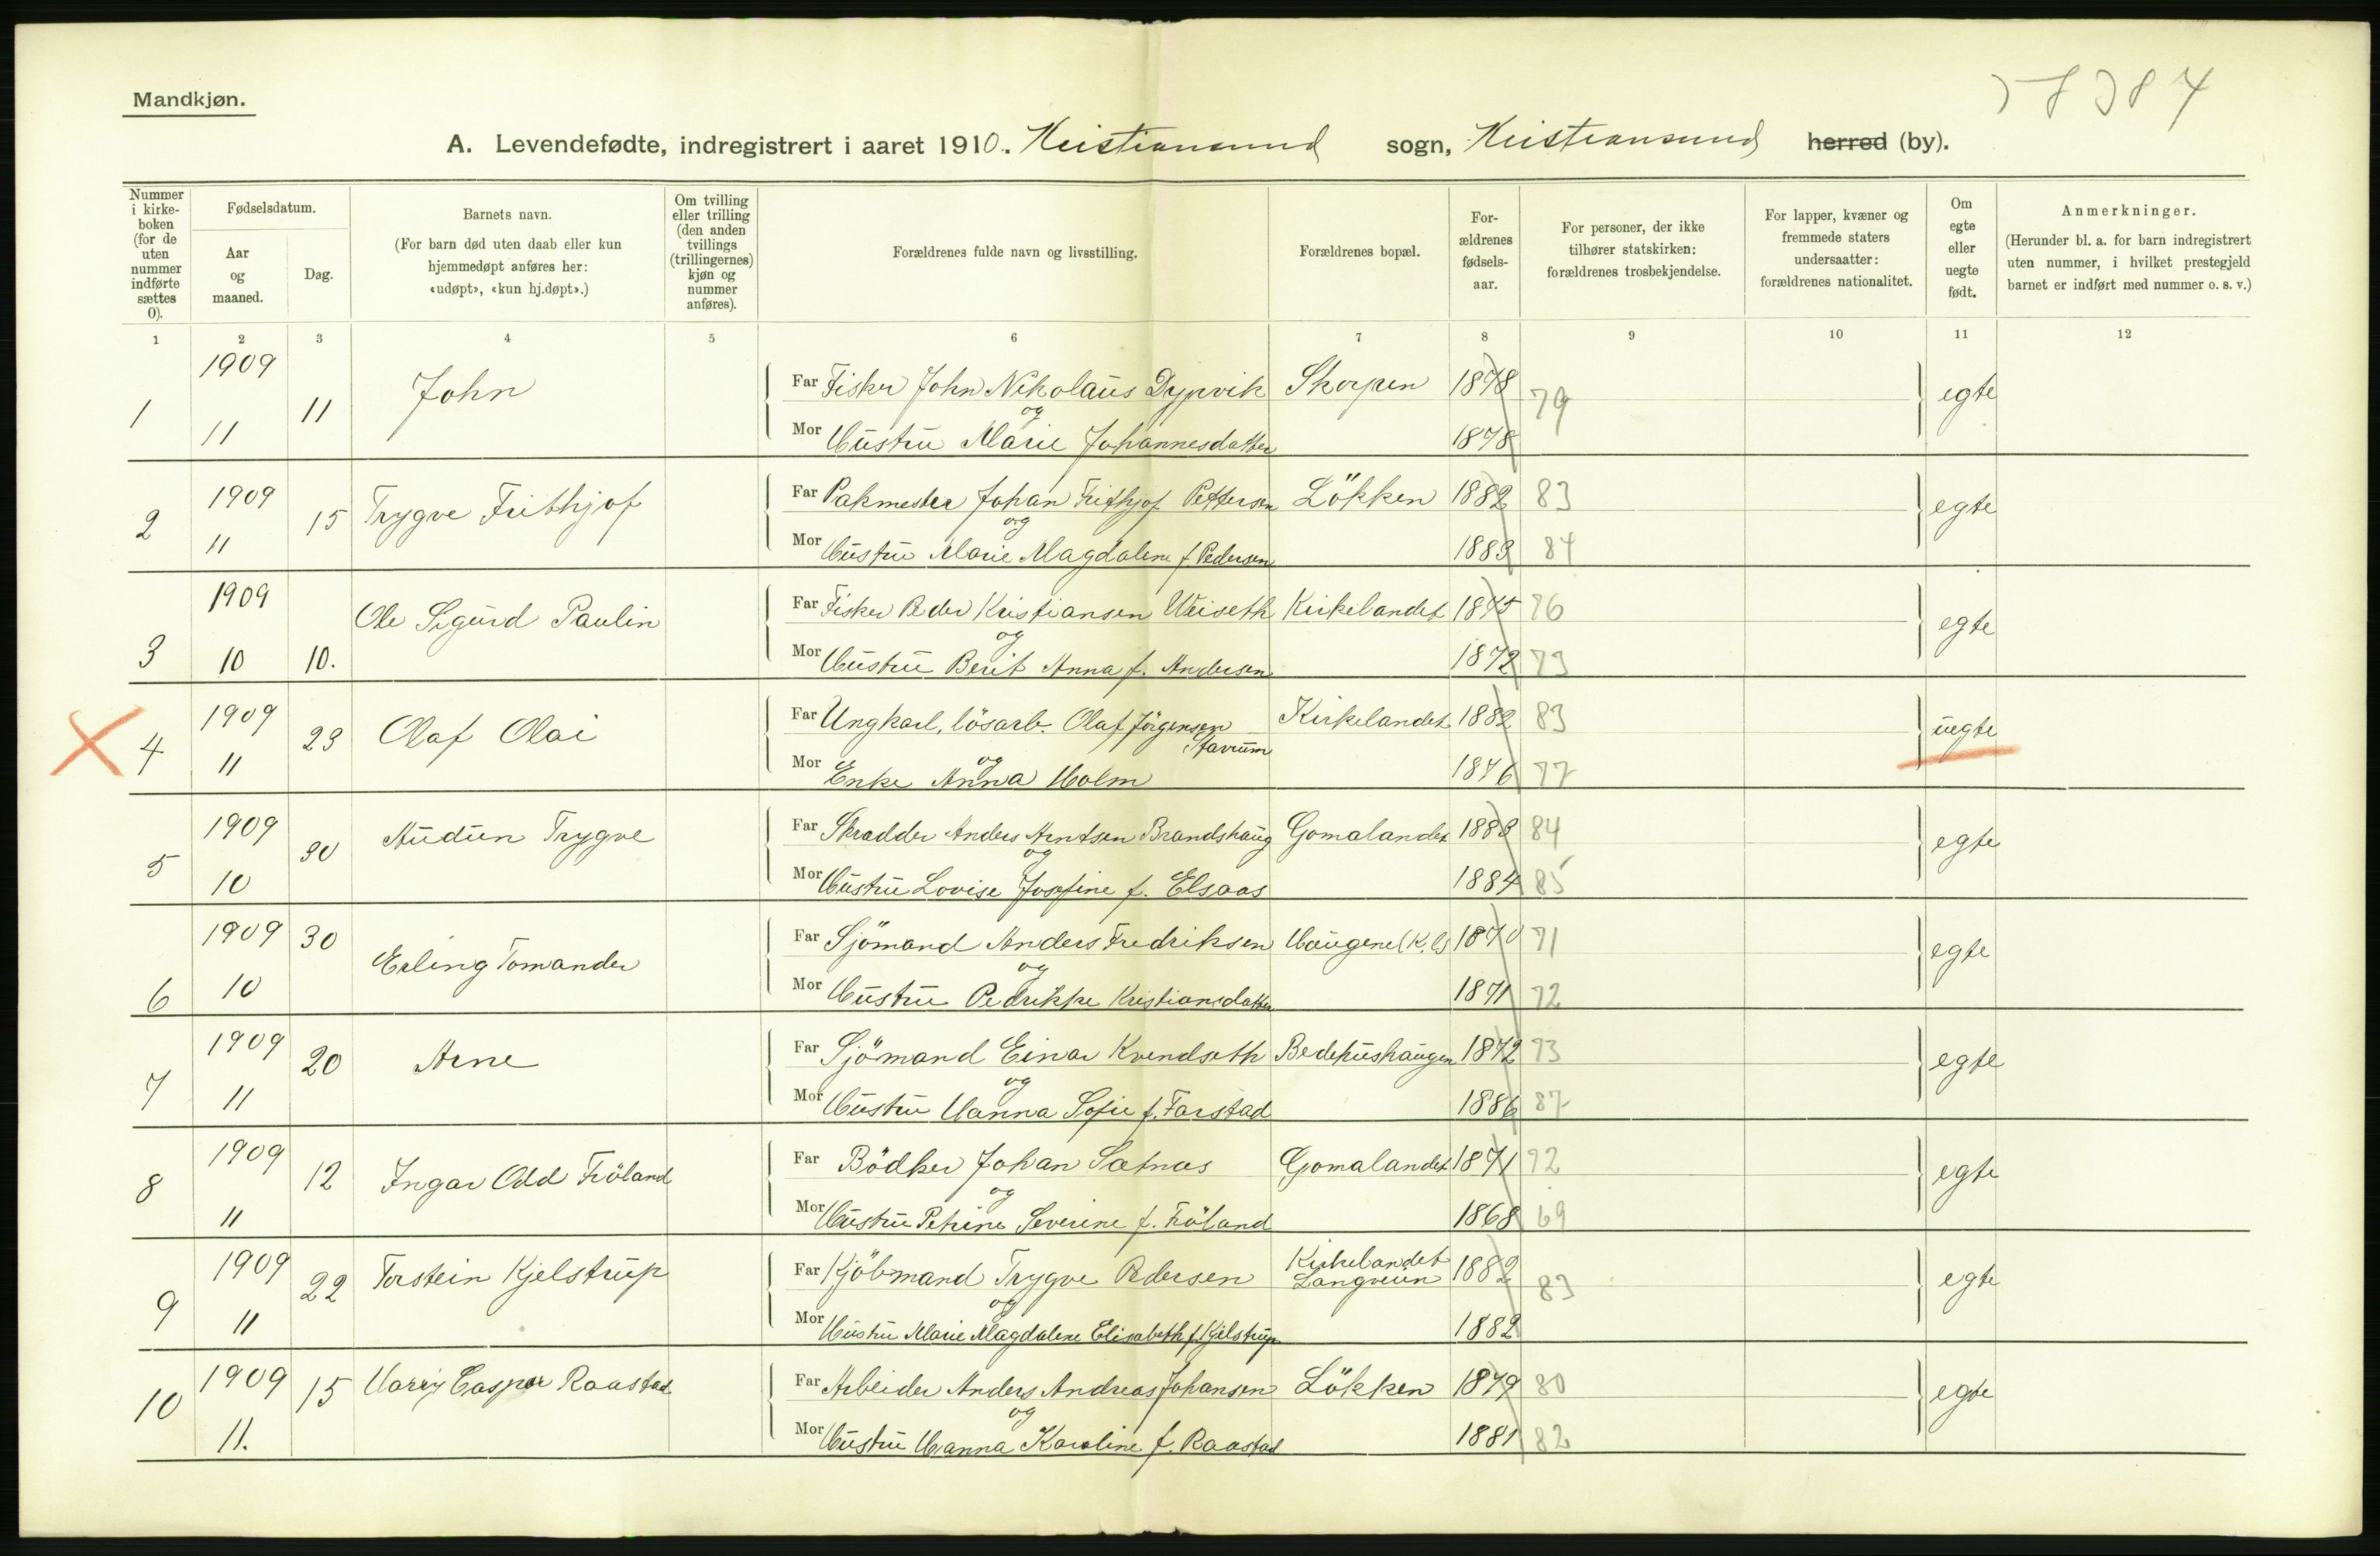 Mandkjøn.
A. Levendefødte, indregistrert i aaret 1910. Kristiansund sogn, Kristiansund herred (by).
Nummer i kirke-boken (for de uten nummer indførte sættes 0).
Fødselsdatum.
Aar og maaned.
Dag.
Barnets navn.
(For barn død uten daab eller kun hjemmedøpt anføres her: «udøpt», «kun hj.døpt».)
Om tvilling eller trilling (den anden tvillings (trillingernes) kjøn og nummer anføres).
Forældrenes fulde navn og livsstilling.
Forældrenes bopæl.
For-ældrenes fødsels-aar.
For personer, der ikke tilhører statskirken: forældrenes trosbekjendelse.
For lapper, kvæner og fremmede staters undersaatter: forældrenes nationalitet.
Om egte eller uegte født.
Anmerkninger.
(Herunder bl. a. for barn indregistrert uten nummer, i hvilket prestegjeld barnet er indført med nummer o. s. v.)
1 2 3 4 5 6 7 8 9 10 11 12
1 1909 11 11 John
Far Fisker John Nikolaus Dypvik Skorpen 1878 79 egte
og
Mor Hustru Marie Johannesdatter 1878
2 1909 11 15 Trygve Frithjof
Far Pakmester Johan Frithjof Pettersen Lökken 1882 83 egte
og
Mor Hustru Marie Magdalene f. Pedersen 1883 84
3 1909 10 10. Ole Sigurd Paulin
Far Fisker Peder Kristiansen Ureseth Kirkelandet 1875 76 egte
og
Mor Hustru Berit Anna f. Andersen 1872 73
4 1909 11 23 Olaf Olai
Far Ungkarl, lösarb. Olaf Jörgensen Stavrum Kirkelandet 1882 83 uegte
og
Mor Enke Anna Holm 1876 77
5 1909 10 30 Audun Trygve
Far Skradder Anders Arntsen Brandshaug Gomalandet 1883 84 egte
og
Mor Hustru Lovise Josefine f. Elsaas 1884 85
6 1909 10 30 Erling Tomander
Far Sjömand Anders Fredriksen Haugene (K.l) 1870 71 egte
og
Mor Hustru Pedrikke Kristiansdatter 1871 72
7 1909 11 20 Arne
Far Sjömand Einar Kvendseth Bedehushaugen 1872 73 egte
og
Mor Hustru Hanna Sofie f. Farstad 1886 87
8 1909 11 12 Ingar Odd Fröland
Far Bödker Johan Sætnes Gomalandet 1871 72 egte
og
Mor Hustru Petrine Severine f. Fröland 1868 69
9 1909 11 22 Torstein Kjelstrup
Far Kjöbmand Trygve Pedersen Kirkelandet Langveien 1882 83 egte
og
Mor Hustru Marie Magdalene Elisabeth f. Kjelstrup 1882
10 1909 11. 15 Harry Caspar Raastad
Far Arbeider Anders Andreas Johansen Lökken 1879 80 egte
og
Mor Hustru Hanna Karoline f. Raastad 1881 82